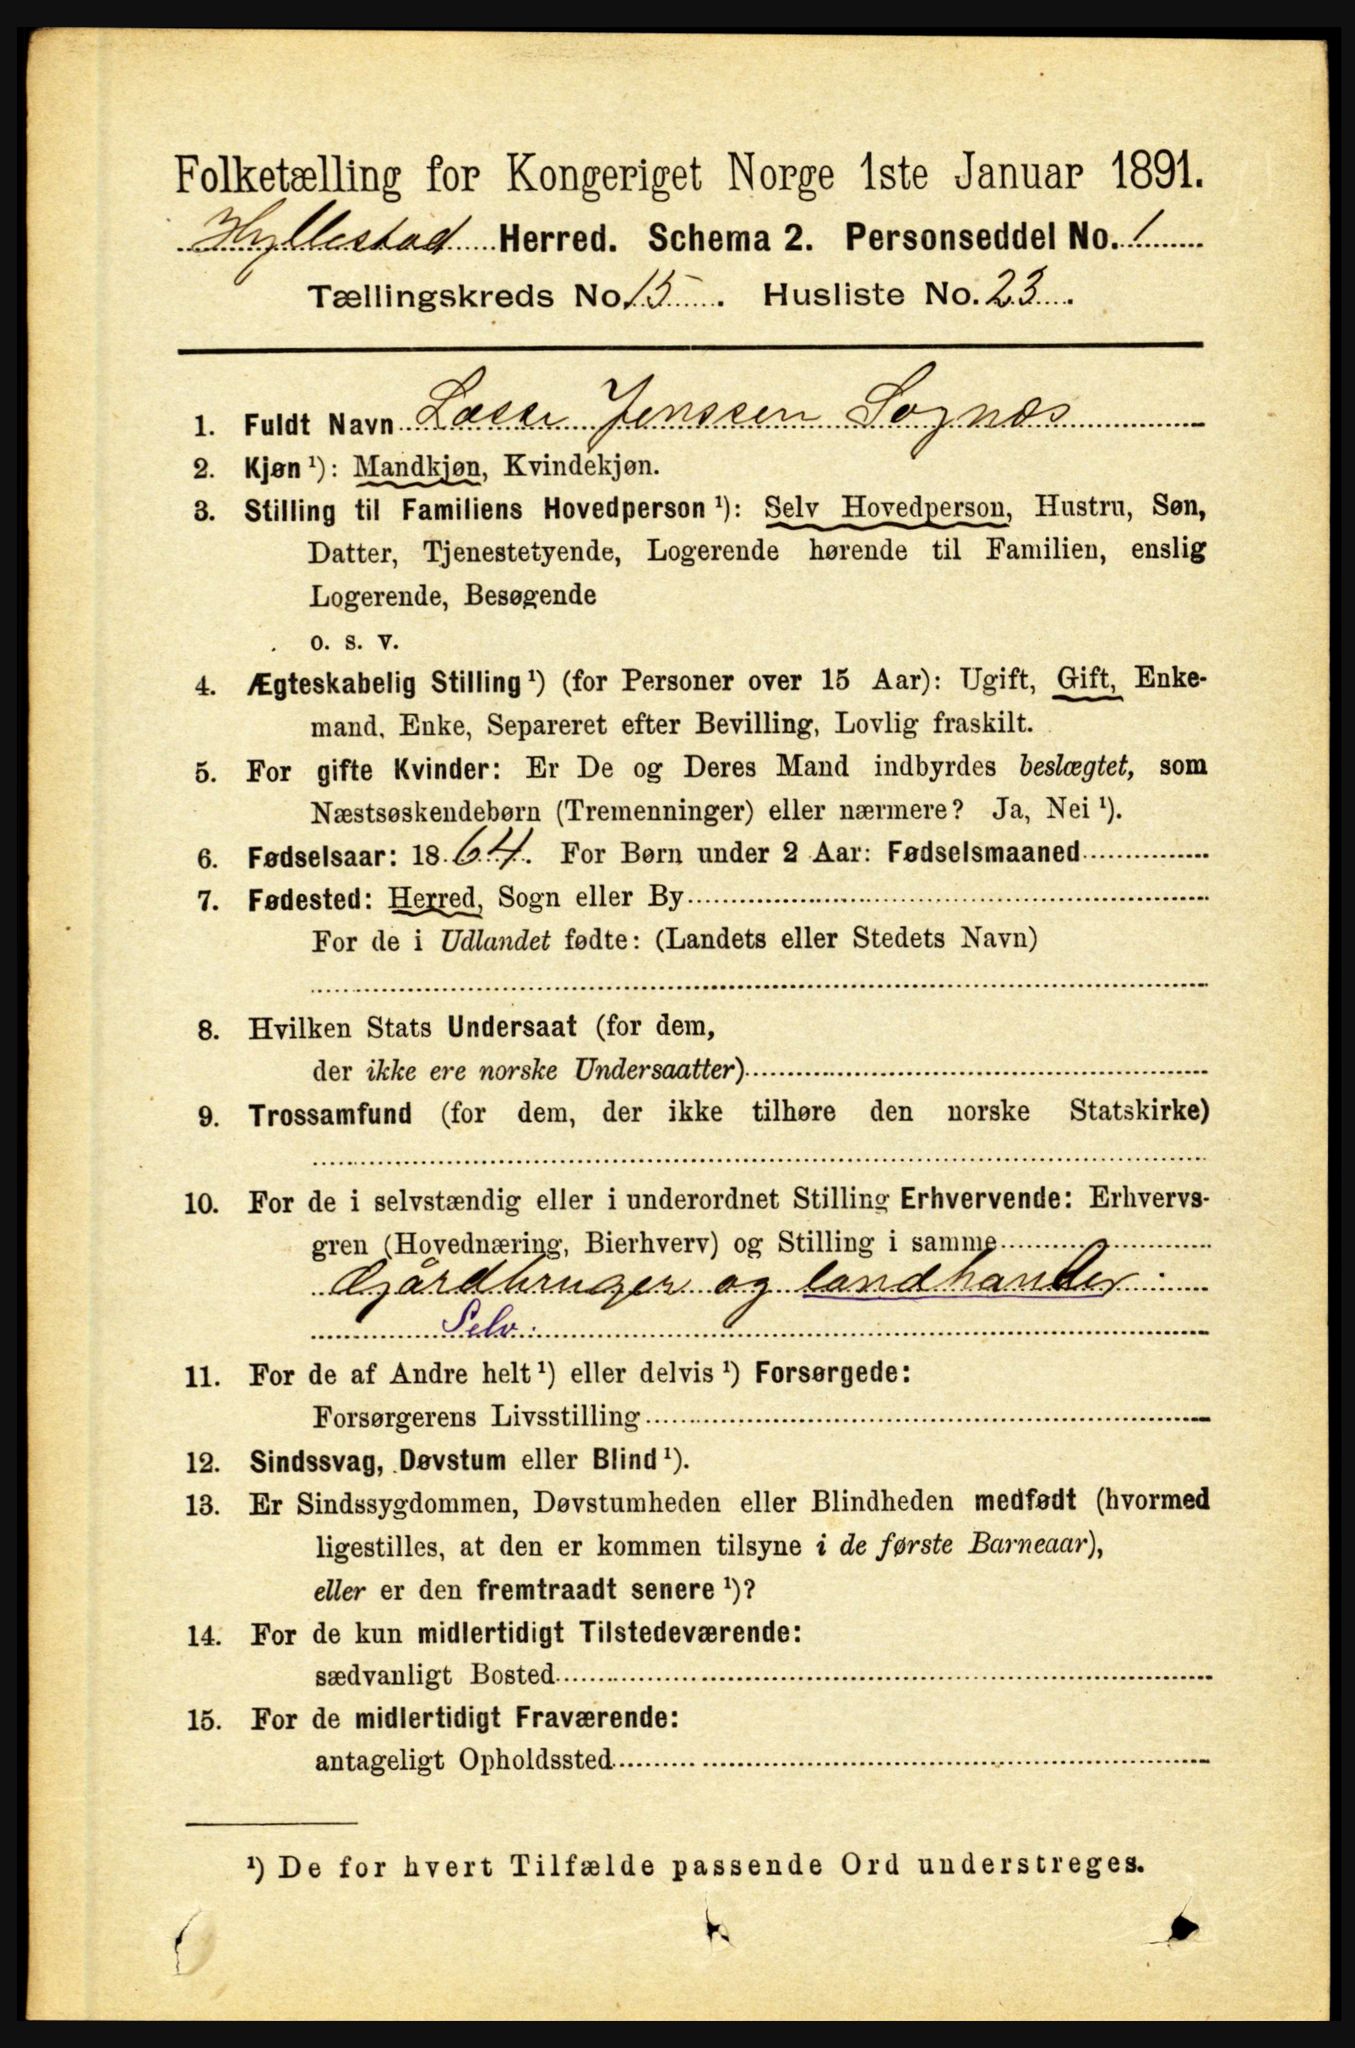 Folketælling for Kongeriget Norge 1ste Januar 1891.
Hyllestad Herred. Schema 2. Personseddel No. 1
Tællingskreds No. 15. Husliste No. 23.
1. Fuldt Navn Lasse Jenssen Sognæs
2. Kjøn ¹): Mandkjøn, Kvindekjøn.
3. Stilling til Familiens Hovedperson ¹): Selv Hovedperson, Hustru, Søn,
Datter, Tjenestetyende, Logerende hørende til Familien, enslig
Logerende, Besøgende
o. s. v.
4. Ægteskabelig Stilling ¹) (for Personer over 15 Aar): Ugift, Gift, Enke-
mand, Enke, Separeret efter Bevilling, Lovlig fraskilt.
5. For gifte Kvinder: Er De og Deres Mand indbyrdes beslægtet, som
Næstsøskendebørn (Tremenninger) eller nærmere? Ja, Nei ¹).
6. Fødselsaar: 1864. For Børn under 2 Aar: Fødselsmaaned
7. Fødested: Herred, Sogn eller By
For de i Udlandet fødte: (Landets eller Stedets Navn)
8. Hvilken Stats Undersaat (for dem,
der ikke ere norske Undersaatter)
9. Trossamfund (for dem, der ikke tilhøre den norske Statskirke)
10. For de i selvstændig eller i underordnet Stilling Erhvervende: Erhvervs-
gren (Hovednæring, Bierhverv) og Stilling i samme
Gjårdbruger og landhander.
Selv.
11. For de af Andre helt ¹) eller delvis ¹) Forsørgede:
Forsørgerens Livsstilling
12. Sindssvag, Døvstum eller Blind ¹).
13. Er Sindssygdommen, Døvstumheden eller Blindheden medfødt (hvormed
ligestilles, at den er kommen tilsyne i de første Barneaar),
eller er den fremtraadt senere ¹)?
14. For de kun midlertidigt Tilstedeværende:
sædvanligt Bosted
15. For de midlertidigt Fraværende:
antageligt Opholdssted
¹) De for hvert Tilfælde passende Ord understreges.